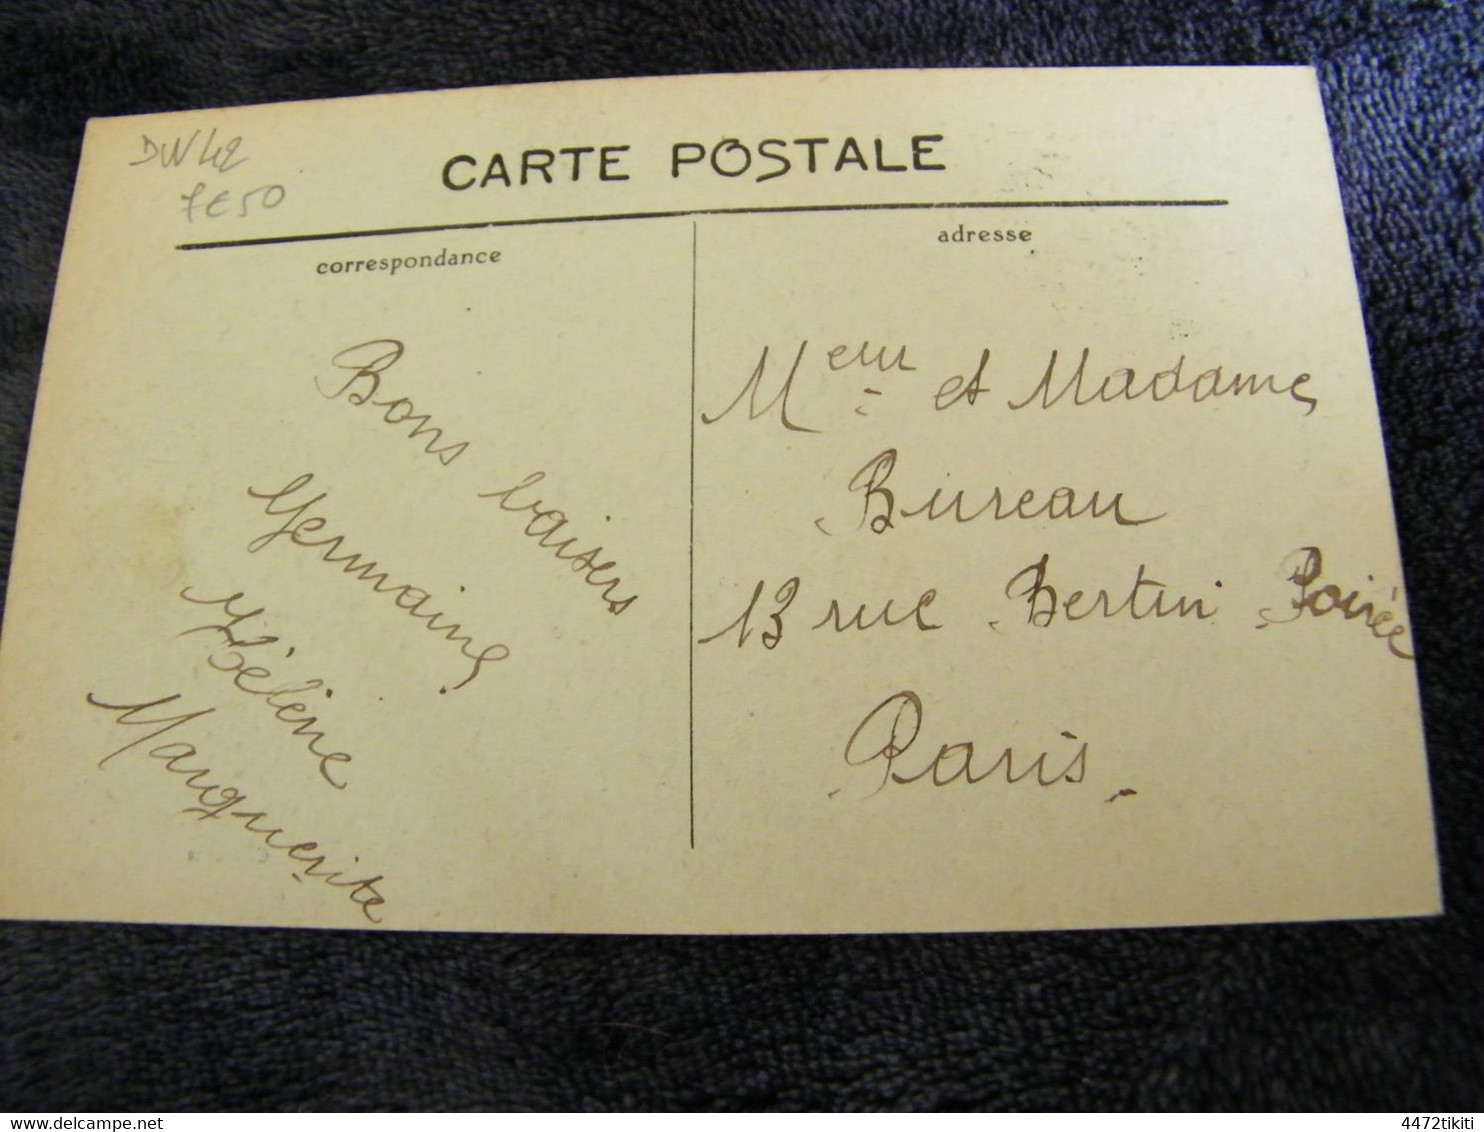 DW42
7€50
CARTE POSTALE
correspondance
adresse
Bons baisers
Germaine
Hélène
Marguerite
Meur et Madame
Bureau
13 rue Bertin Poirée
Paris.
4472tikiti